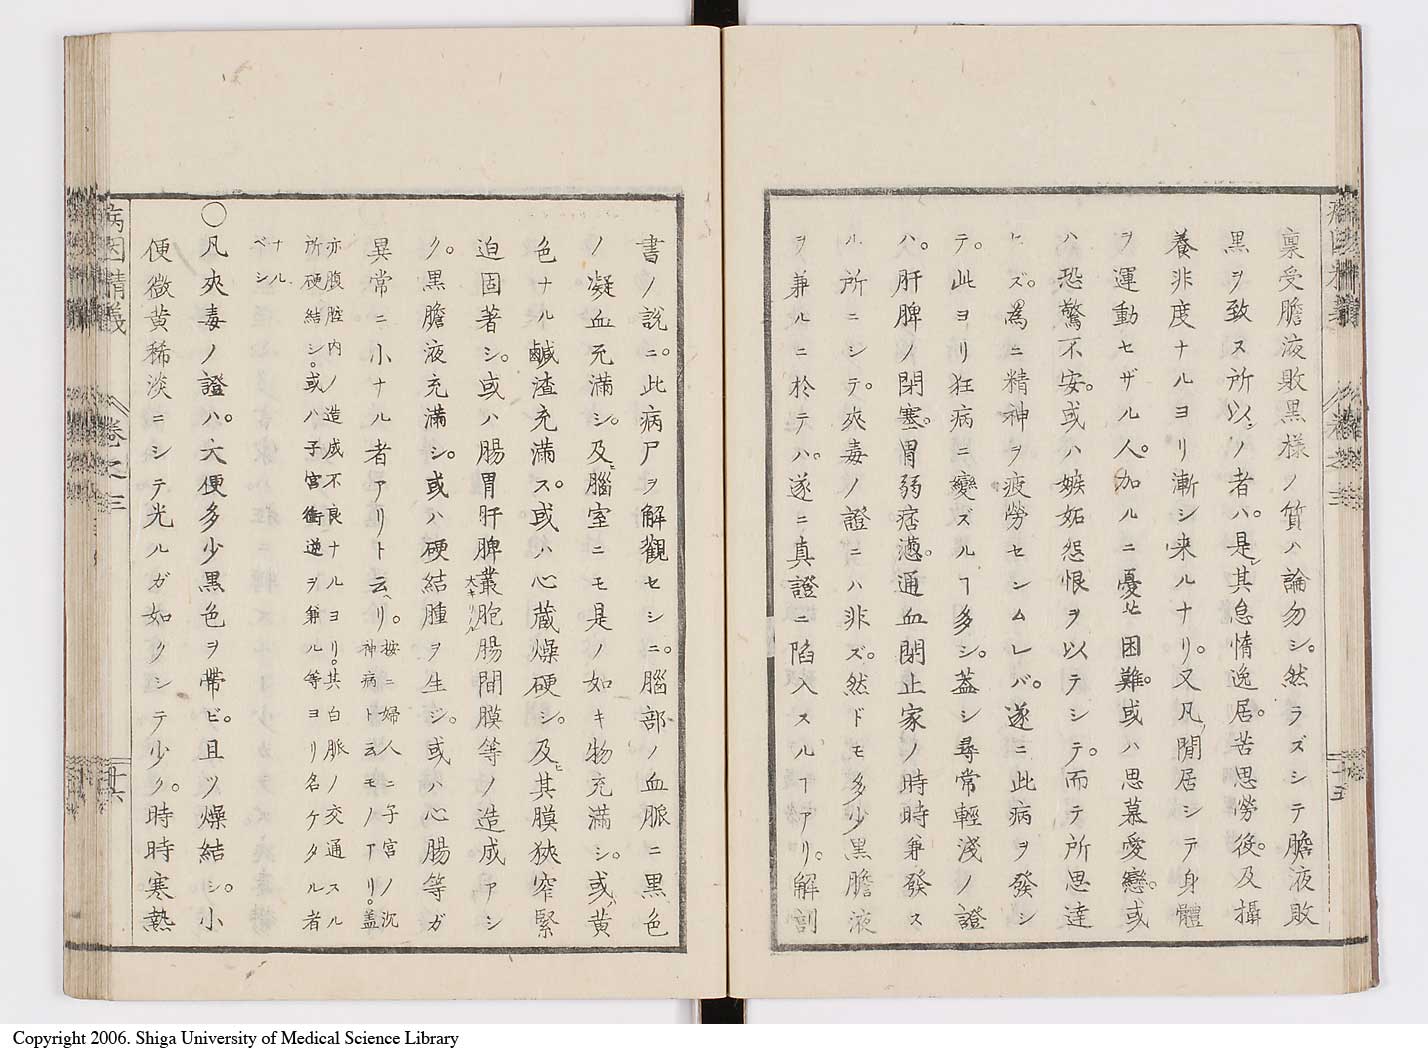 稟受膽液敗黒様ノ質ハ論勿シ。然ラズシテ膽液敗
黒ヲ致ス所以ンノ者ハ。是レ其怠惰逸居。苦思勞後。及攝
養非度ナルヨリ漸シ来ルナリ。又凡ソ閒居シテ身體
ヲ運動セザル人。加ルニ憂ヒ困難。或ハ思慕愛戀。或
ハ恐驚不安。或ハ嫉妬怨恨ヲ以テシテ。而テ所思達
セズ。為ニ精神ヲ疲勞セシムレバ。遂ニ此病ヲ發シ
テ。此ヨリ狂病ニ變ズルヿ多シ。蓋シ尋常輕淺ノ證
ハ。肝脾ノ閉塞。胃弱痞懣。通血閉止家ノ時時兼發ス
ル所ニシテ。夾毒ノ證ニハ非ズ。然ドモ多少黒膽液
ヲ兼ルニ於テハ。遂ニ真證ニ陷入スルヿアリ。解剖
書ノ說ニ。此病尸ヲ解觀セシニ。腦部ノ血脈ニ黒色
ノ凝血充滿シ。及ヒ腦室ニモ是ノ如キ物充滿シ。或ハ黄
色ナル鹹渣充滿ス。或ハ心蔵燥硬シ。及ヒ其膜狹窄緊
迫固著シ。或ハ腸胃肝脾叢大キリール胞腸間膜等ノ造成アシ
ク。黒膽液充滿シ。或ハ硬結腫ヲ生ジ。或ハ心腸等ガ
異常ニ小ナル者アリト云ヘリ。按ニ婦人ニ子宮ノ沉
神病ト云モノアリ。蓋
亦腹腔内ノ造成不良ナルヨリ。其白脈ノ交通スル
所硬結シ。或ハ子宮衝逆ヲ兼ル等ヨリ名ケタル者
ナル
ベシ
〇凡夾毒ノ證ハ。大便多少黒色ヲ帶ビ。且ツ燥結シ。小
便微黄稀淡ニシテ光ルガ如クシテ少ク。時時寒熱
病因精義
卷之三
十六
十五
Copyright 2006. Shiga University of Medical Science Library